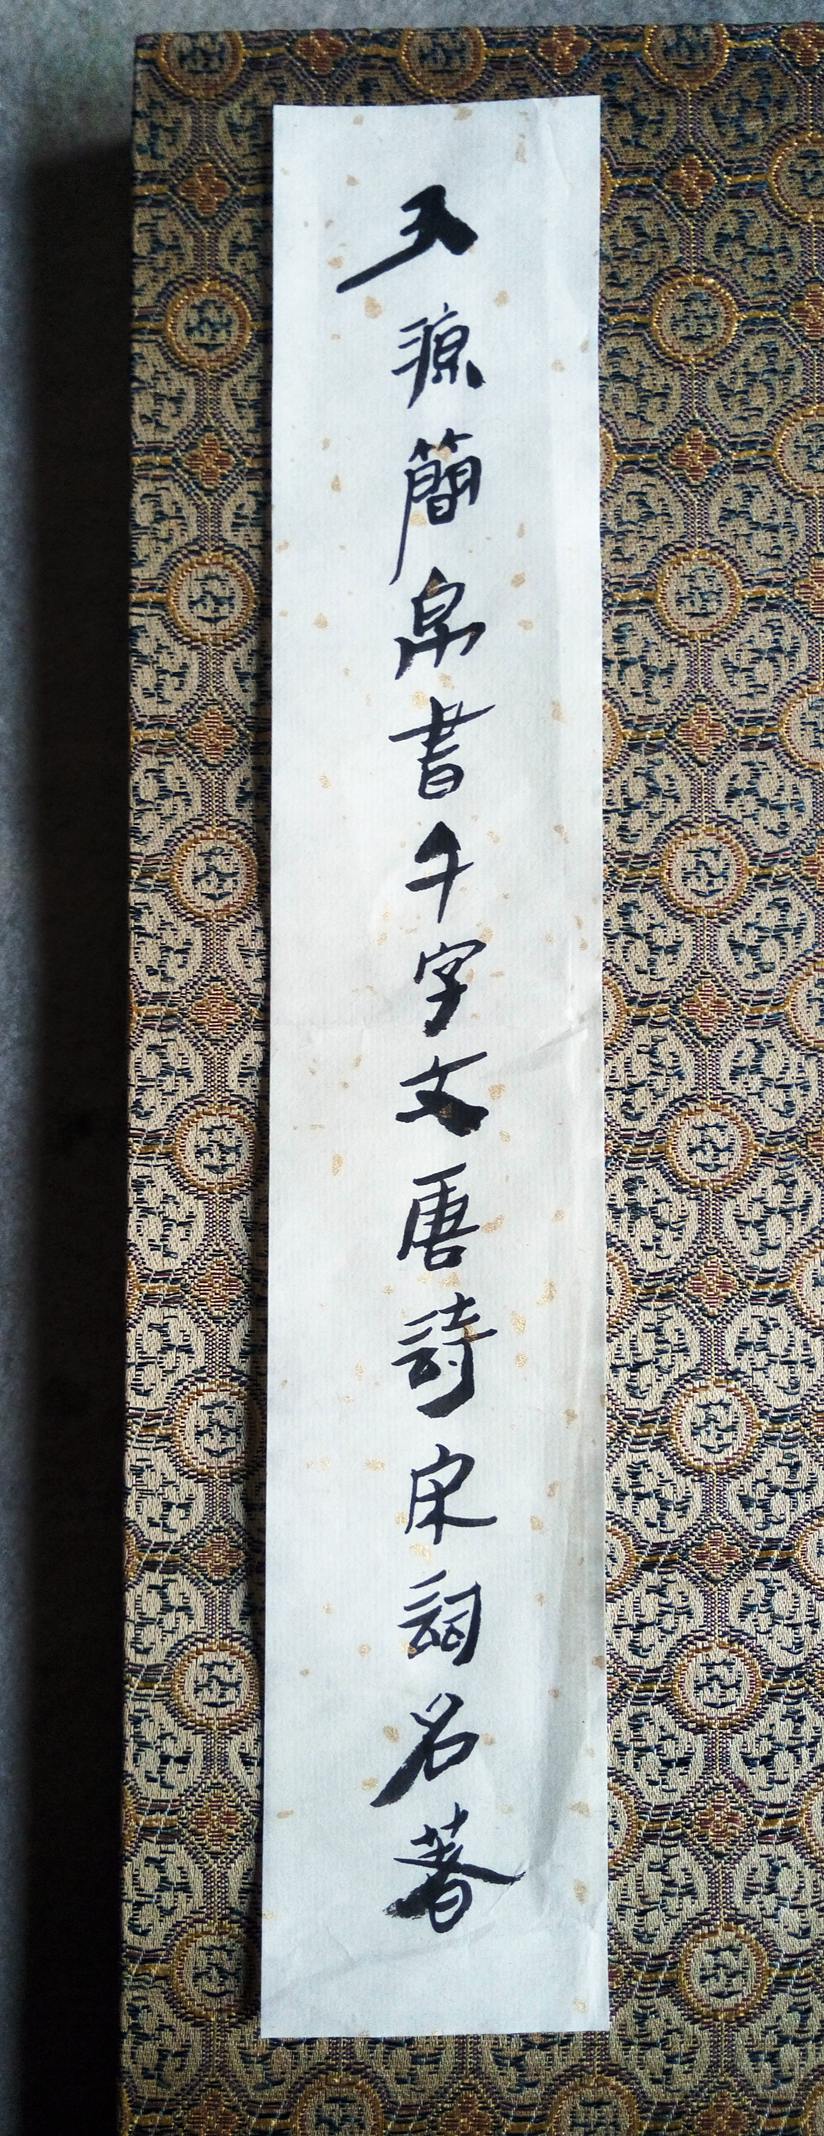 天源簡帛書千字文唐詩宋詞名著